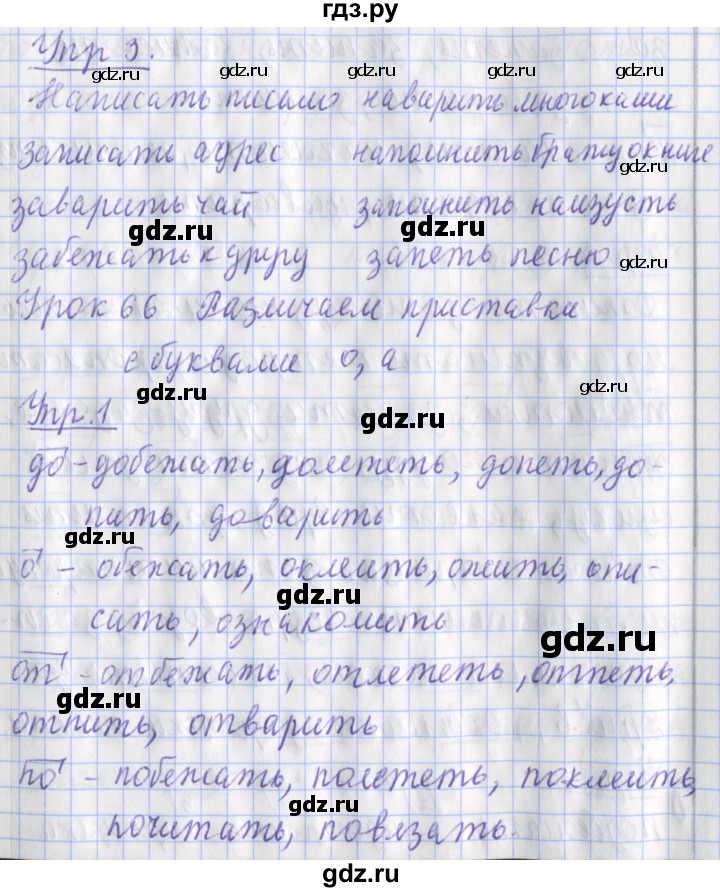 гдз.ру
Упр 3.
gdz.ru gdz.ru gdz.ru
Написать письмо наварить много каши
записать адрес напомнить брату о книге
gdz.ru
заварить чай запомнить наизусть
gdz.ru gdz.ru
забежать к другу запеть песню
gdz.ru
Урок 66 Различаем приставки
с буквами о, а
gdz.ru gdz.ru
Упр.1 gdz.ru
до - добежать, долететь, допеть, до-
пить, доварить
gdz.ru
о - обежать, оклеить, ожить, опи-
gdz.ru
сать, ознакомить
gdz.ru
от - отбежать, отлететь, отпеть,
gdz.ru
отпить, отварить
по - побежать, полететь, поклеить,
gdz.ru
почитать, повязать.
gdz.ru